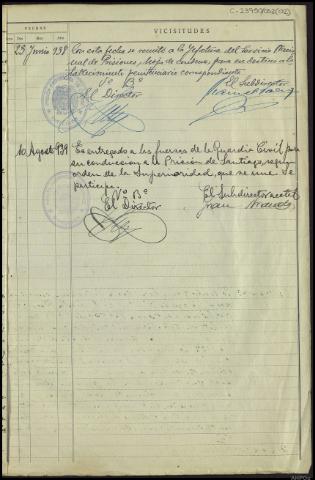 C-23950/002(02)
FECHAS
VICISITUDES
Día Mes Año
25 Junio 938 Con esta fecha se remite a la Jefatura del Servicio Nacional
de Prisiones, hoja de condena, para su destino al es-
tablecimiento penitenciario correspondiente
Vº Bº
El Director
El Subdirector
10 Agosto 939 Es entregado a las fuerzas de la Guardia Civil para
su conducción a la Prisión de Santiago, según
orden de la Superioridad, que se une. Se
participa
Vº Bº
El Director
El Subdirector acctal
Juan